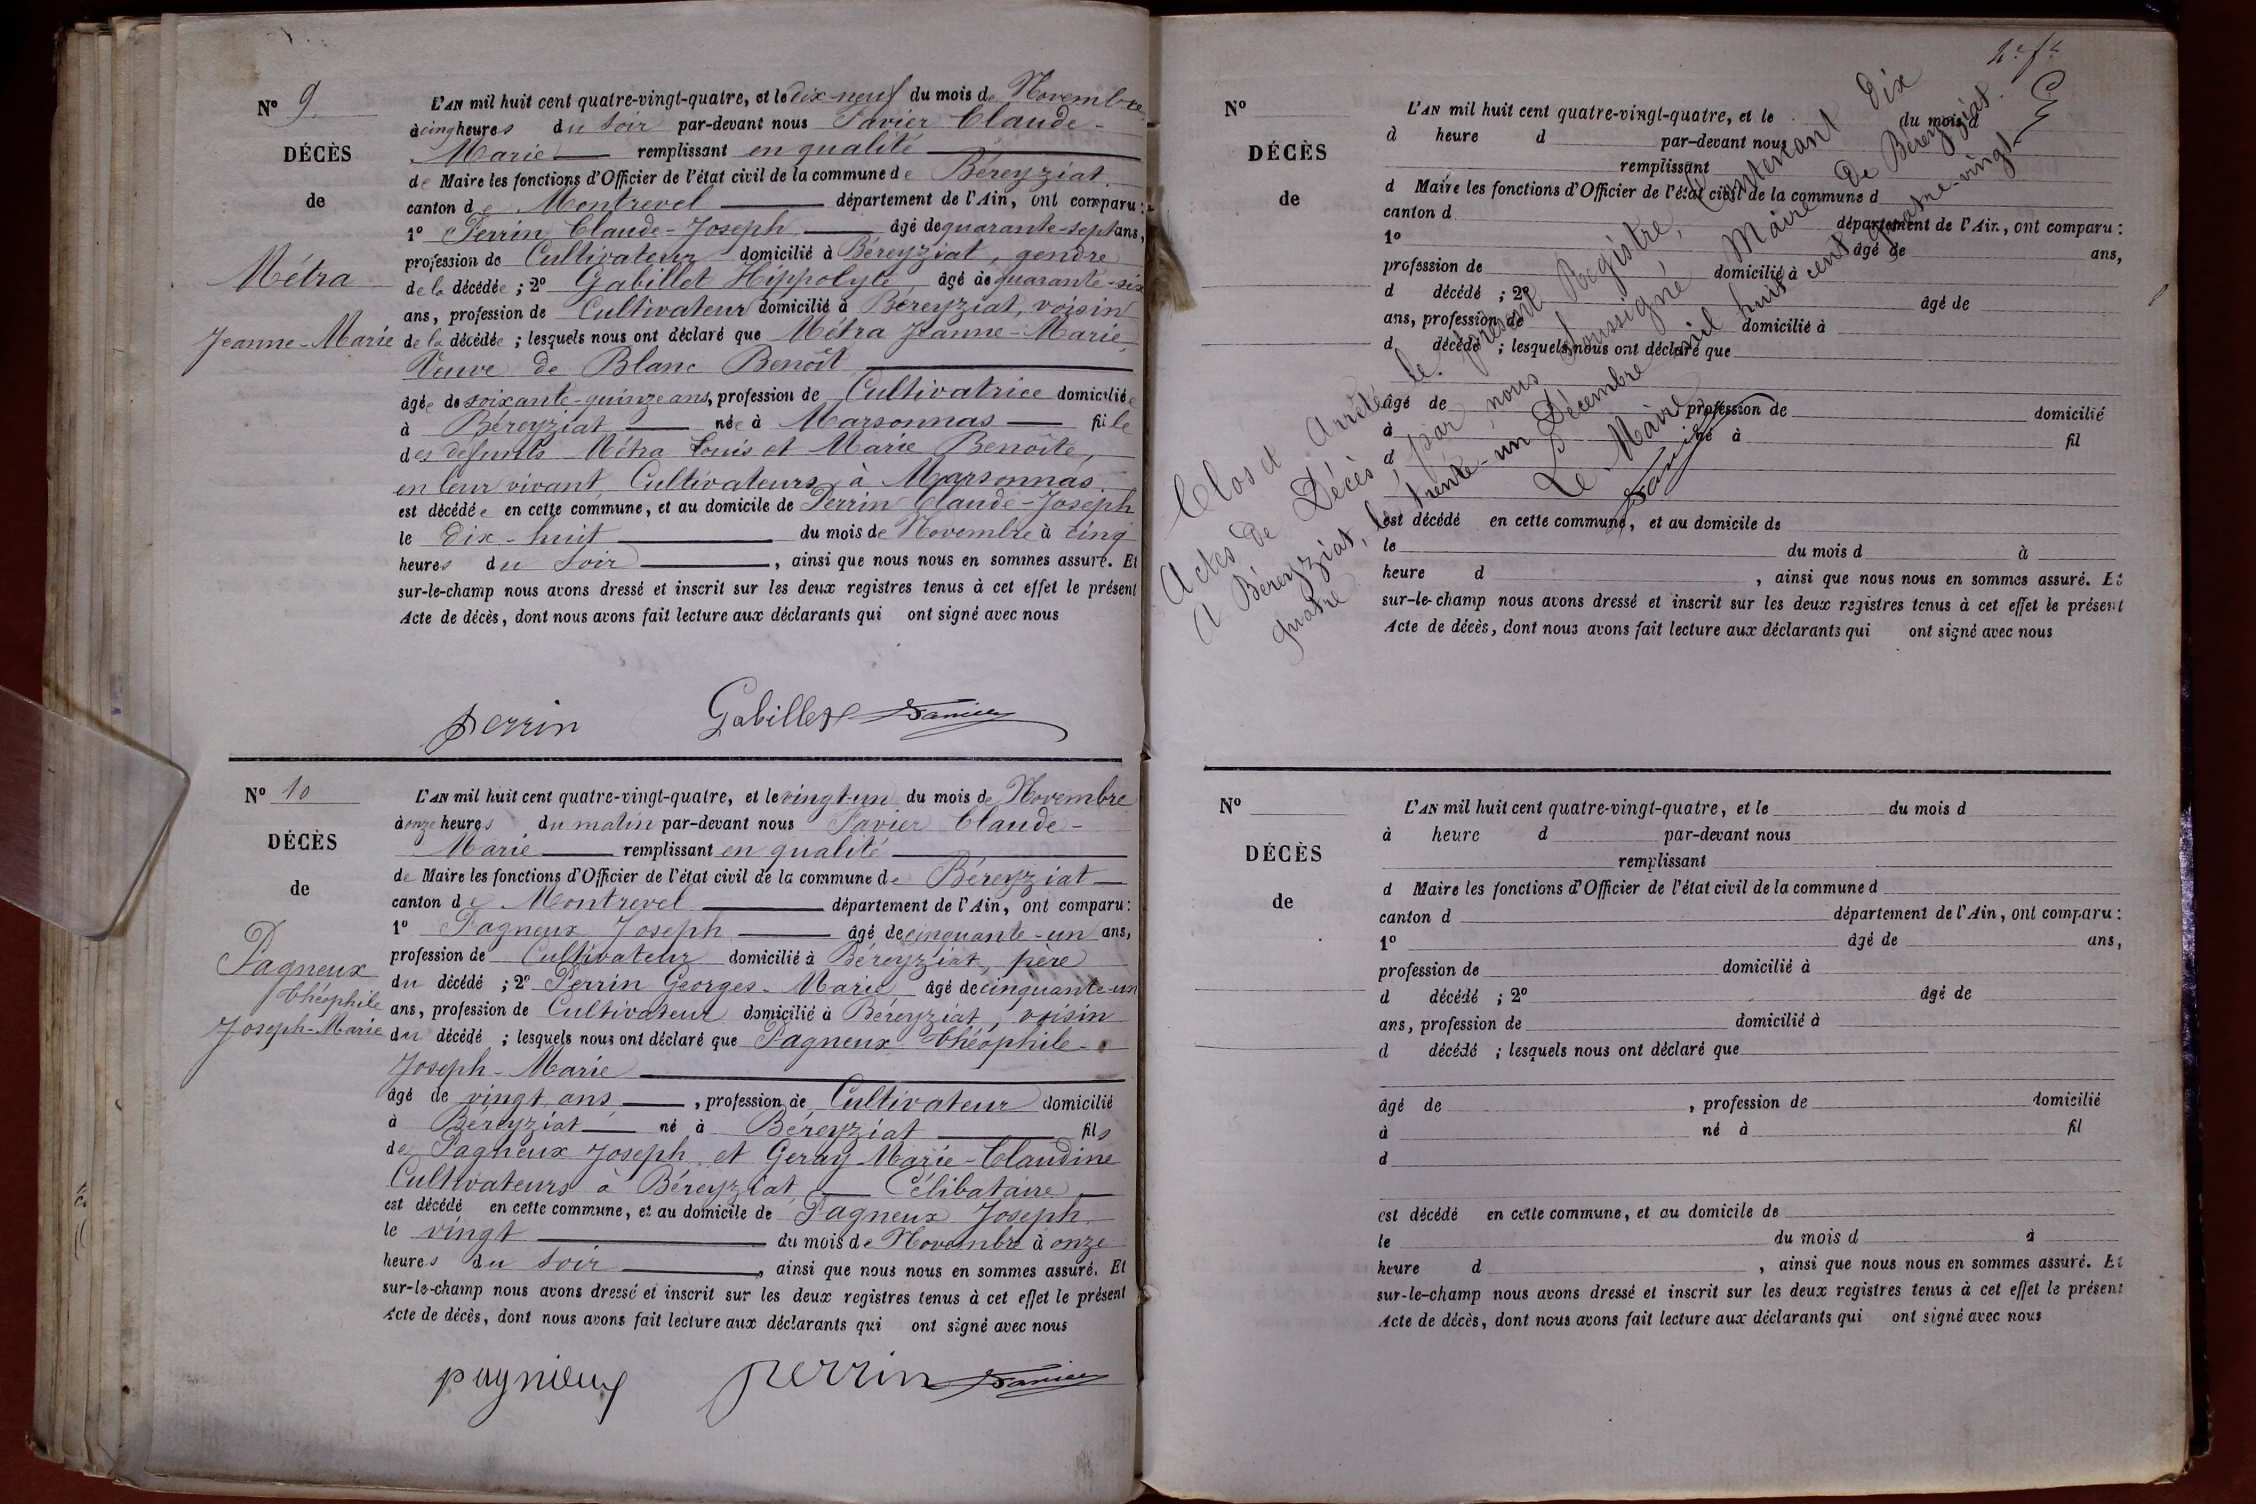 N° 9
DÉCÈS
de
Métra
Jeanne-Marie
L'AN mil huit cent quatre-vingt-quatre, et le dix-neuf du mois de Novembre
à cinq heures du soir par-devant nous Favier Claude-
Marie remplissant en qualité
de Maire les fonctions d'Officier de l'état civil de la commune de Béreyziat
canton de Montrevel département de l'Ain, ont comparu :
1° Perrin Claude-Joseph âgé de quarante-sept ans,
profession de Cultivateur domicilié à Béreyziat, gendre
de la décédée ; 2° Gabillet Hippolyte, âgé de quarante-six
ans, profession de Cultivateur domicilié à Béreyziat, voisin
de la décédée ; lesquels nous ont déclaré que Métra Jeanne-Marie,
Veuve de Blanc Benoît
âgée de soixante-quinze ans, profession de Cultivatrice domiciliée
à Béreyziat née à Marsonnas fille
des defunts Métra Louis et Marie Benoîte,
en leur vivant Cultivateurs à Marsonnas
est décédée en cette commune, et au domicile de Perrin Claude-Joseph
le dix-huit du mois de Novembre à cinq
heures du soir, ainsi que nous nous en sommes assuré. Et
sur-le-champ nous avons dressé et inscrit sur les deux registres tenus à cet effet le présent
Acte de décès, dont nous avons fait lecture aux déclarants qui ont signé avec nous
perrin Gabillet Favier
N° 10
DÉCÈS
de
Pagneux
Théophile
Joseph-Marie
L'AN mil huit cent quatre-vingt-quatre, et le vingt-un du mois de Novembre
à onze heures du matin par-devant nous Favier Claude-
Marie remplissant en qualité
de Maire les fonctions d'Officier de l'état civil de la commune de Béreyziat
canton de Montrevel département de l'Ain, ont comparu :
1° Pagneux Joseph âgé de cinquante-un ans,
profession de Cultivateur domicilié à Béreyziat, père
du décédé ; 2° Perrin Georges-Marie, âgé de cinquante-un
ans, profession de Cultivateur domicilié à Béreyziat, voisin
du décédé ; lesquels nous ont déclaré que Pagneux Théophile-
Joseph-Marie
âgé de vingt ans, profession de Cultivateur domicilié
à Béreyziat né à Béreyziat fils
de Pagneux Joseph et Geray Marie-Claudine
Cultivateurs à Béreyziat Célibataire
est décédé en cette commune, et au domicile de Pagneux Joseph
le vingt du mois de Novembre à onze
heures du soir, ainsi que nous nous en sommes assuré. Et
sur-le-champ nous avons dressé et inscrit sur les deux registres tenus à cet effet le présent
Acte de décès, dont nous avons fait lecture aux déclarants qui ont signé avec nous
pagnieux perrin Favier
N°
DÉCÈS
de
L'AN mil huit cent quatre-vingt-quatre, et le du mois d
à heure d par-devant nous
remplissant
d Maire les fonctions d'Officier de l'état civil de la commune d
canton d département de l'Ain, ont comparu :
1° âgé de ans,
profession de domicilié à
d décédé ; 2° âgé de
ans, profession de domicilié à
d décédé ; lesquels nous ont déclaré que
âgé de profession de domicilié
à né à fil
d
est décédé en cette commune, et au domicile de
le du mois d à
heure d , ainsi que nous nous en sommes assuré. Et
sur-le-champ nous avons dressé et inscrit sur les deux registres tenus à cet effet le présent
Acte de décès, dont nous avons fait lecture aux déclarants qui ont signé avec nous
Clos et Arrêté le présent Registre, Contenant Dix
Actes de Décès, par nous soussigné Maire de Béreyziat.
A Béreyziat, le trente-un Décembre mil huit cent quatre-vingt-
quatre
Le Maire
Favier
N°
DÉCÈS
de
L'AN mil huit cent quatre-vingt-quatre, et le du mois d
à heure d par-devant nous
remplissant
d Maire les fonctions d'Officier de l'état civil de la commune d
canton d département de l'Ain, ont comparu :
1° âgé de ans,
profession de domicilié à
d décédé ; 2° âgé de
ans, profession de domicilié à
d décédé ; lesquels nous ont déclaré que
âgé de , profession de domicilié
à né à fil
d
est décédé en cette commune, et au domicile de
le du mois d à
heure d , ainsi que nous nous en sommes assuré. Et
sur-le-champ nous avons dressé et inscrit sur les deux registres tenus à cet effet le présent
Acte de décès, dont nous avons fait lecture aux déclarants qui ont signé avec nous